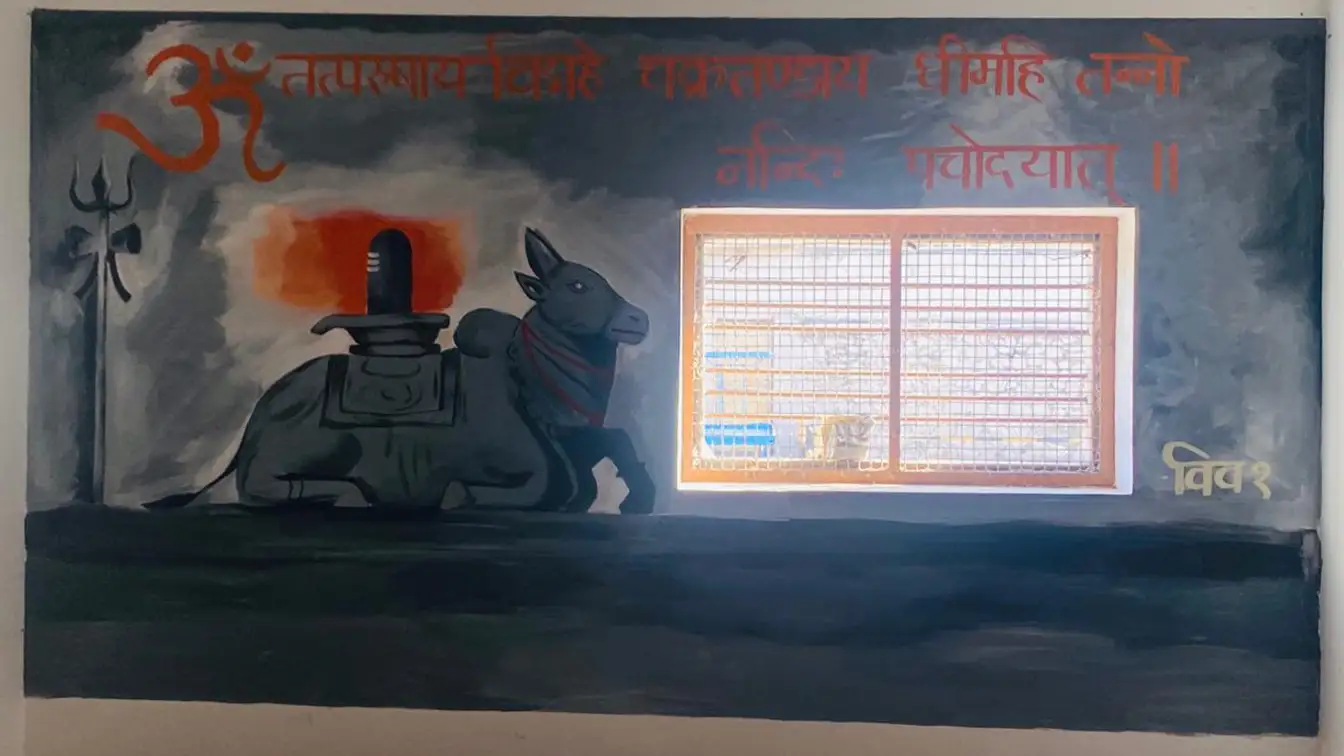 ॐ तत्पुरूषाय विद्महे चक्रतुण्डाय धीमहि तन्नो
नन्दिः प्रचोदयात् ॥
विव १